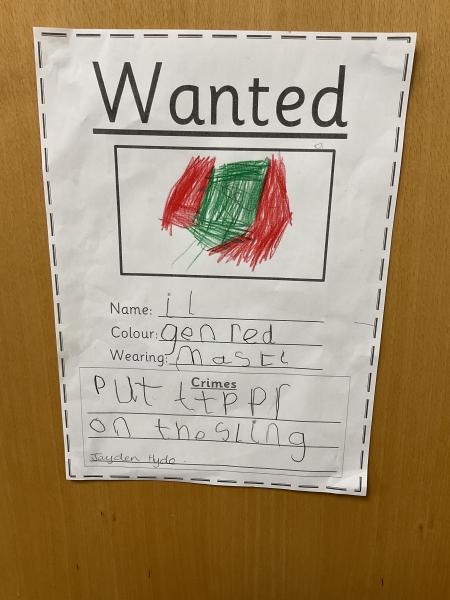 Wanted
Name: il
Colour: gen red
Wearing: mask
Crimes
Put ttppr
on the sling
Jayden Hyde.